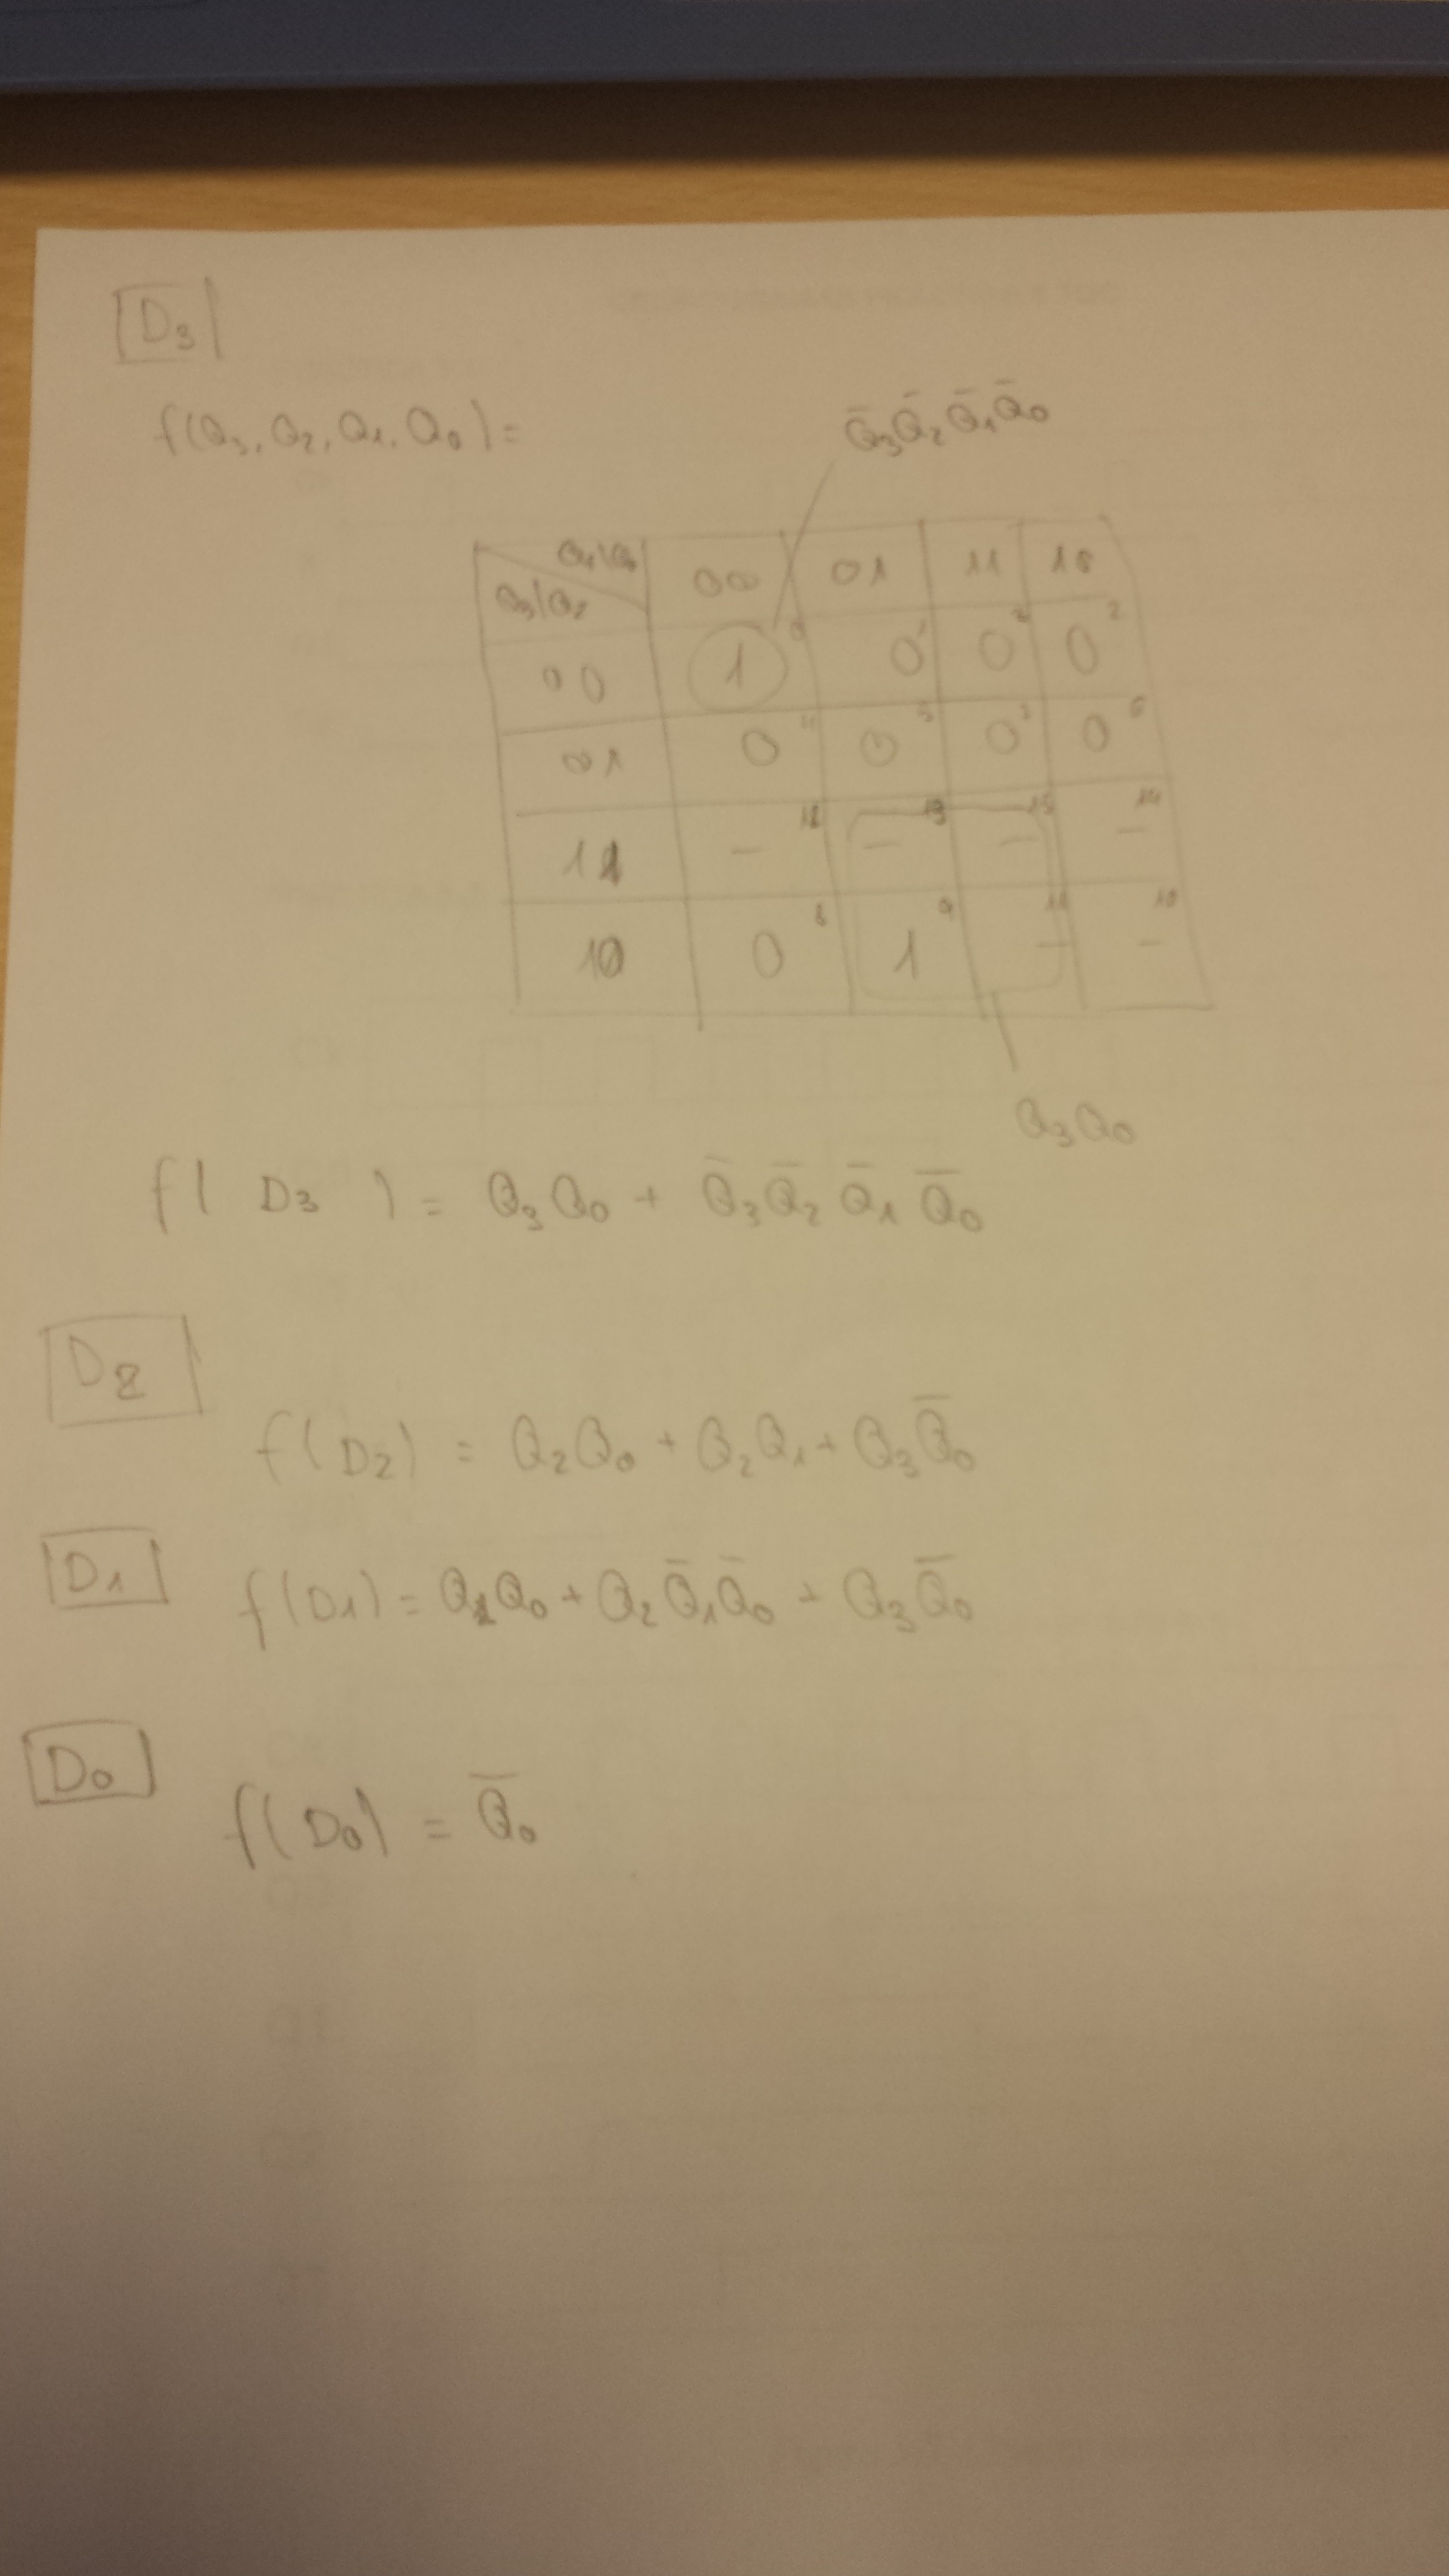 D₃
f(Q₃, Q₂, Q₁, Q₀) =
Q̄₃Q̄₂Q̄₁Q̄₀
Q₁\Q₀ 00 01 11 10
Q₃\Q₂
00 1 0 0 1 0 0 2
01 0 4 0 5 0 7 0 6
11 - 12 - 13 - 15 - 14
10 0 8 1 9 - 11 - 10
Q₃Q₀
f( D₃ ) = Q₃Q₀ + Q̄₃Q̄₂Q̄₁Q̄₀
D₂
f(D₂) = Q₂Q₀ + Q₂Q₁ + Q₃Q̄₀
D₁
f(D₁) = Q₁Q₀ + Q₂Q̄₁Q̄₀ + Q₃Q̄₀
D₀
f(D₀) = Q̄₀